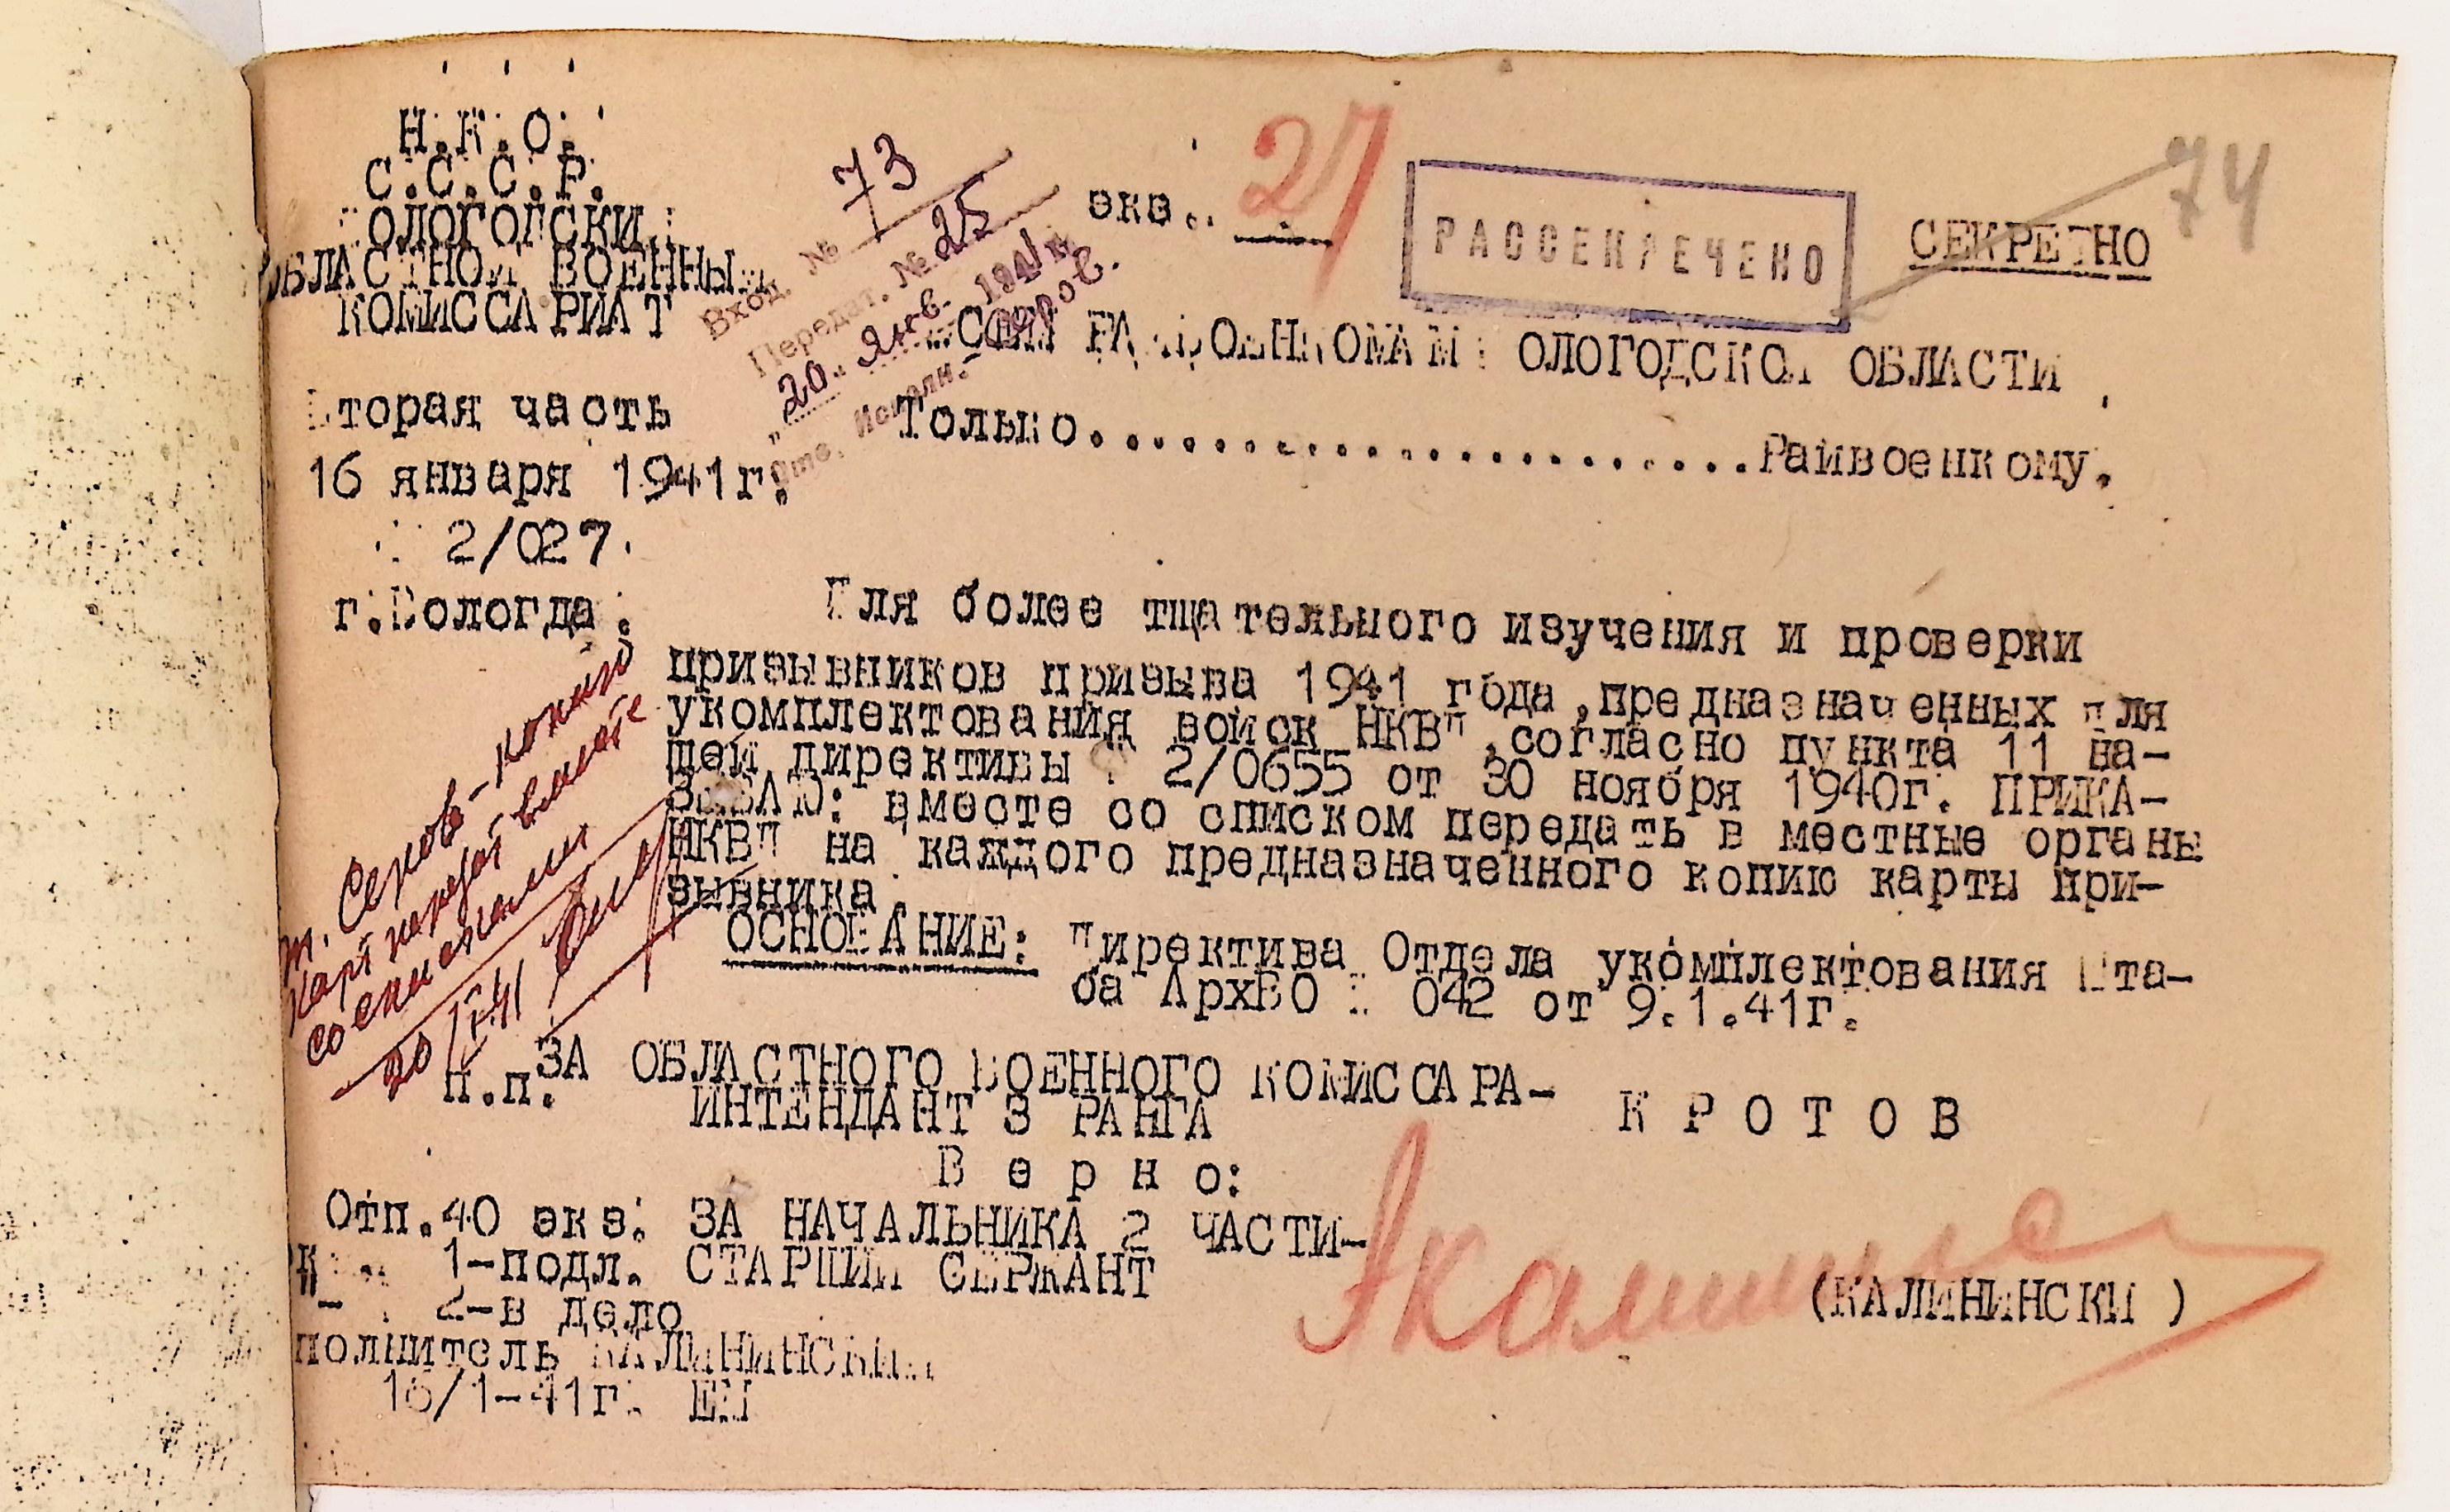 Н.К.О.
С.С.С.Р.
ВОЛОГОДСКИЙ
ОБЛАСТНОЙ ВОЕННЫЙ
КОМИССАРИАТ
Вторая часть
16 января 1941г.
2/027.
г.Вологда.
Вход. № 73
Передат. № 25
"20" Янв. 1941 г.
экз. 27
РАССЕКРЕЧЕНО
СЕКРЕТНО
74
ВСЕМ РАЙВОЕНКОМАМ ВОЛОГОДСКОЙ ОБЛАСТИ
Только.......................Райвоенкому.
Для более тщательного изучения и проверки
призывников призыва 1941 года,предназначенных для
укомплектования войск НКВД,согласно пункта 11 на-
шей директивы № 2/0655 от 30 ноября 1940г. ПРИКА-
ЗЫВАЮ: вместе со списком передать в местные органы
НКВД на каждого предназначенного копию карты при-
зывника.
ОСНОВАНИЕ: Директива Отдела укомплектования Шта-
ба АрхВО № 042 от 9.1.41г.
копию
карт передат вместе
со списками
20/I-41
п.п. ЗА ОБЛАСТНОГО ВОЕННОГО КОМИССАРА-
ИНТЕНДАНТ 3 РАНГА К Р О Т О В
В е р н о:
Отп.40 экз. ЗА НАЧАЛЬНИКА 2 ЧАСТИ-
1-подл. СТАРШИЙ СЕРЖАНТ
(КАЛИНИНСКИЙ)
2-в дело
полнитель КАЛИНИНСКИЙ.
16/1-41г. ЕМ